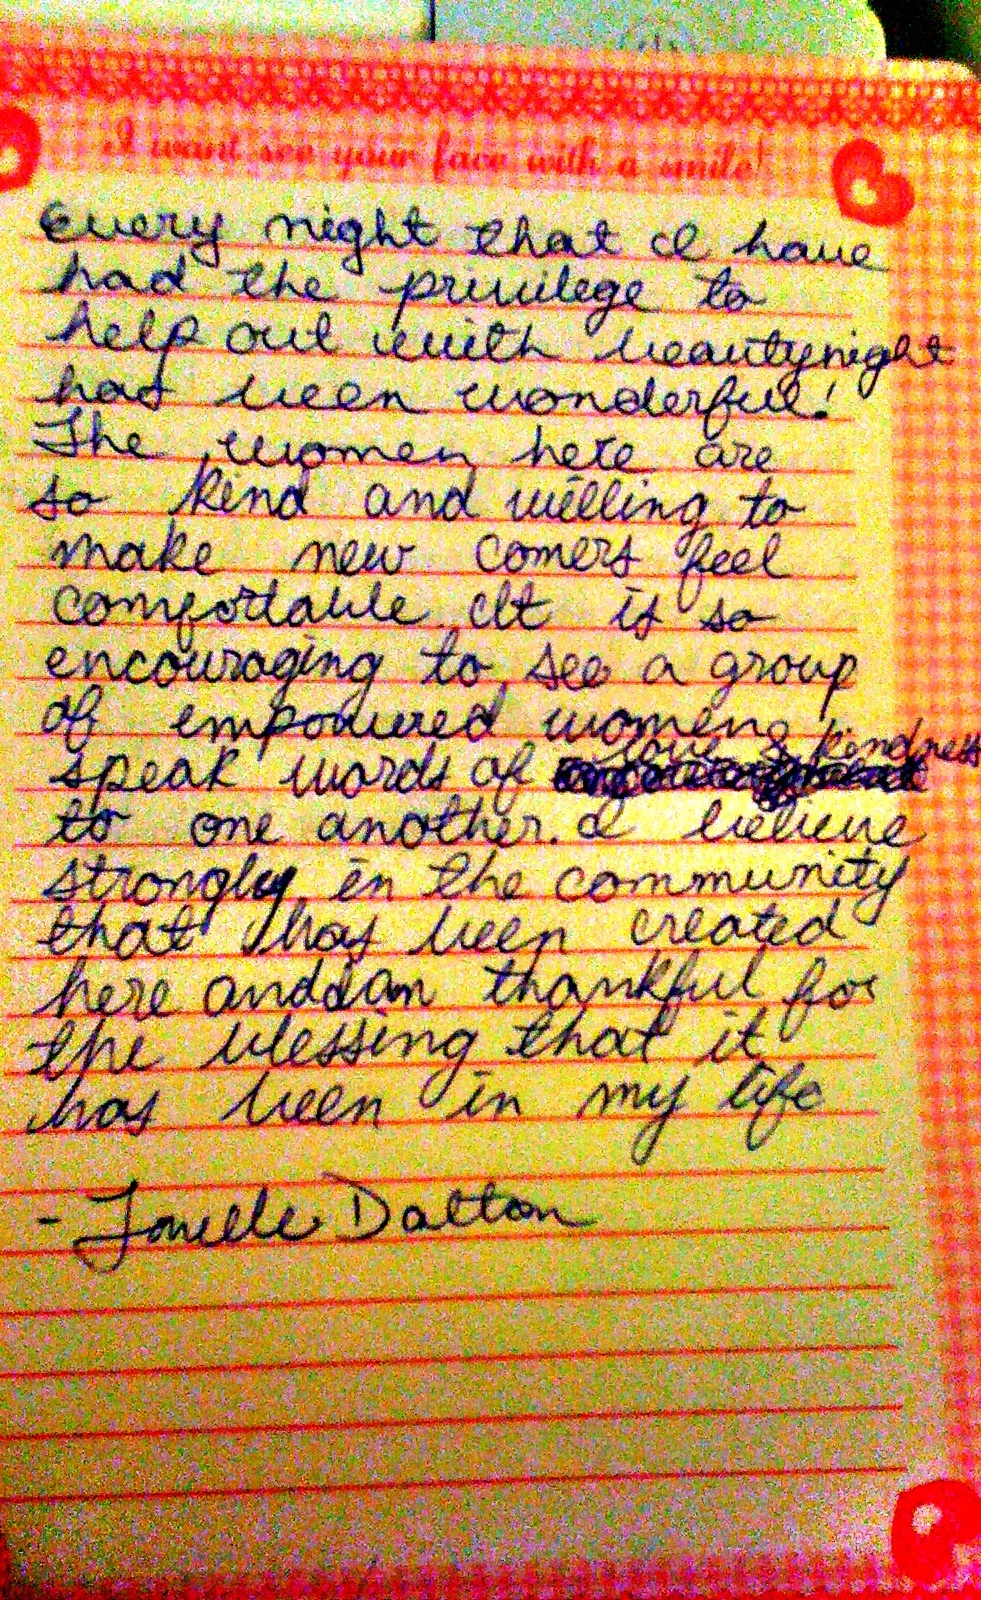 I want see your face with a smile!
Every night that I have
had the privilege to
help out with beautynight
has been wonderful!
The women here are
so kind and willing to
make new comers feel
comfortable. It is so
encouraging to see a group
of empowered womens
love & kindness
speak words of
to one another. I believe
strongly in the community
that has been created
here and I am thankful for
the blessing that it
has been in my life
- Dalton